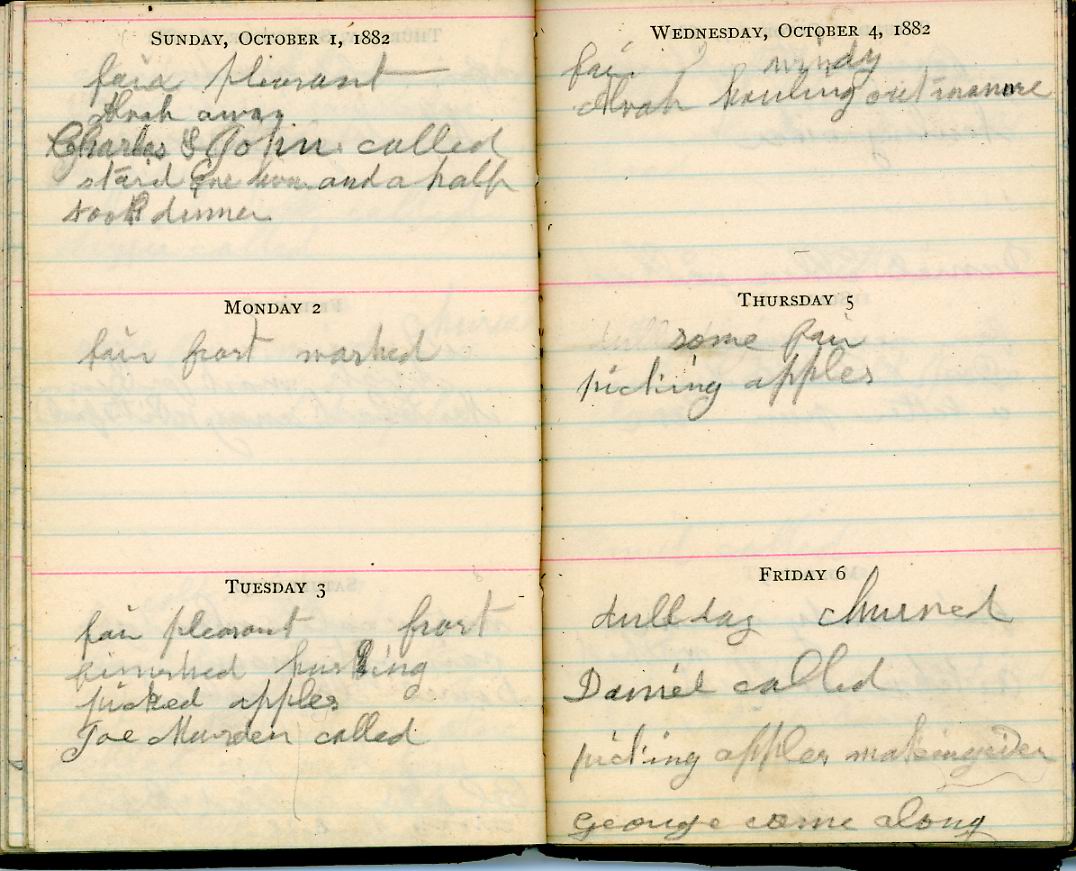 SUNDAY, OCTOBER 1, 1882
fair pleasant
Alvah away
Charles & John called
staid one hour and a half
took dinner
MONDAY 2
fair frost washed
TUESDAY 3
fair pleasant frost
finished husking
picked apples
Joe Marden called
WEDNESDAY, OCTOBER 4, 1882
fair windy
Alvah hauling out manure
THURSDAY 5
some fair
picking apples
FRIDAY 6
dull day churned
Daniel called
picking apples making cider
George come along